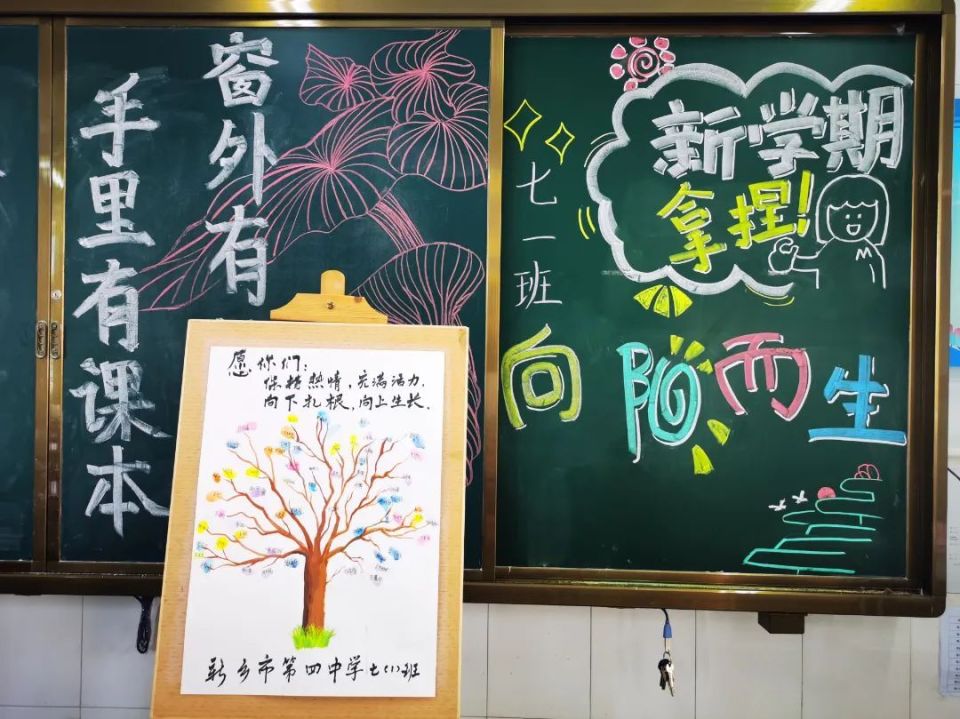 窗外有
手里有课本
七一班
新学期
拿捏!
向阳而生
愿你们:
保持热情,充满活力.
向下扎根,向上生长.
新乡市第四中学七(1)班